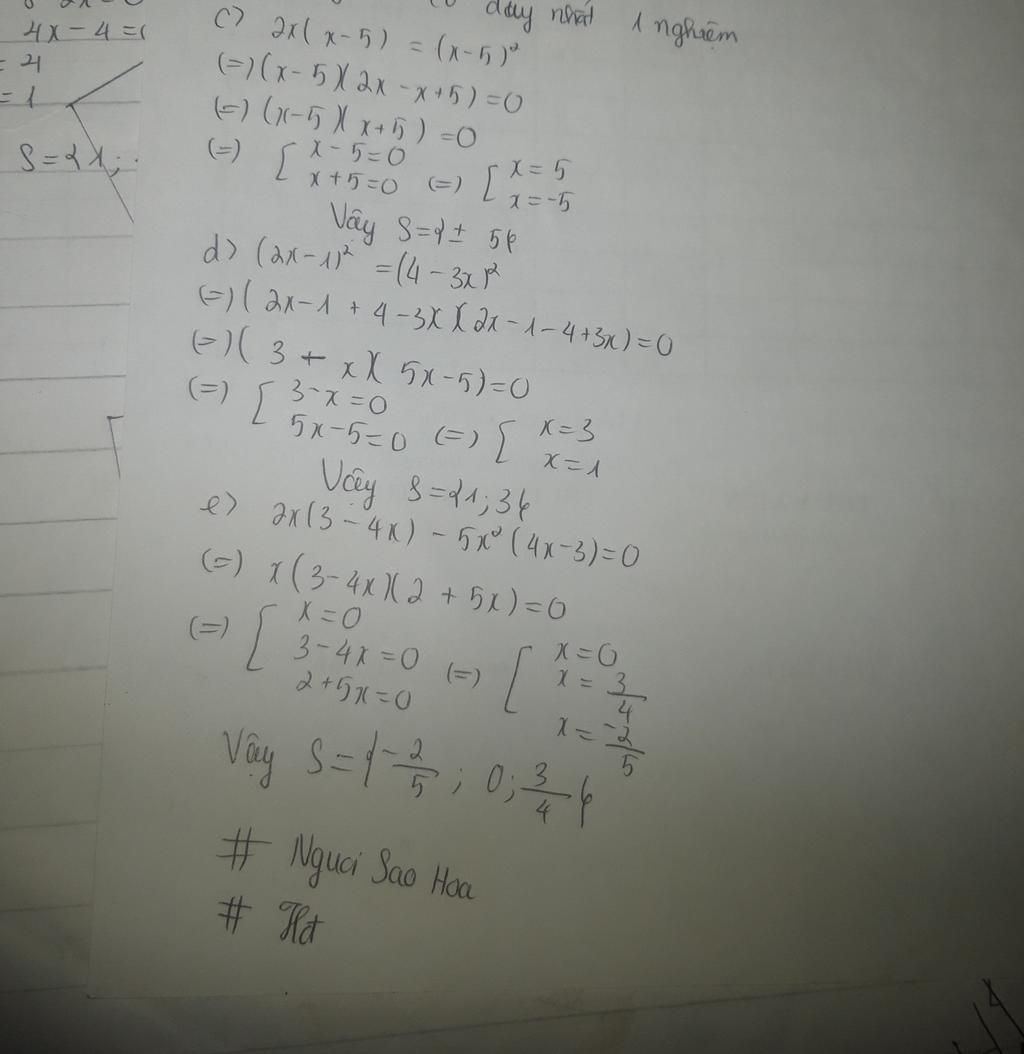 duy nhất 1 nghiệm
4x - 4 = 0
= 4
= 1
S = {1;
c) 2x(x-5) = (x-5)²
(=) (x-5)(2x-x+5) = 0
(=) (x-5)(x+5) = 0
(=) [ x-5=0
x+5=0 (=) [ x=5
x=-5
Vây S={± 5}
d) (2x-1)² = (4-3x)²
(=) (2x-1+4-3x)(2x-1-4+3x)=0
(=) (3 + x)(5x-5)=0
(=) [ 3-x=0
5x-5=0 (=) [ x=3
x=1
Vây S={1;3}
e) 2x(3-4x) - 5x²(4x-3)=0
(=) x(3-4x)(2+5x)=0
(=) [ x=0
3-4x=0
2+5x=0 (=) [ x=0
x=3/4
x=-2/5
Vây S={-2/5; 0; 3/4}
# Nguci Sao Hoa
# Hđ